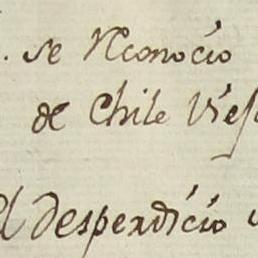 . se Reconocio
de Chile Vies
el desperdicio